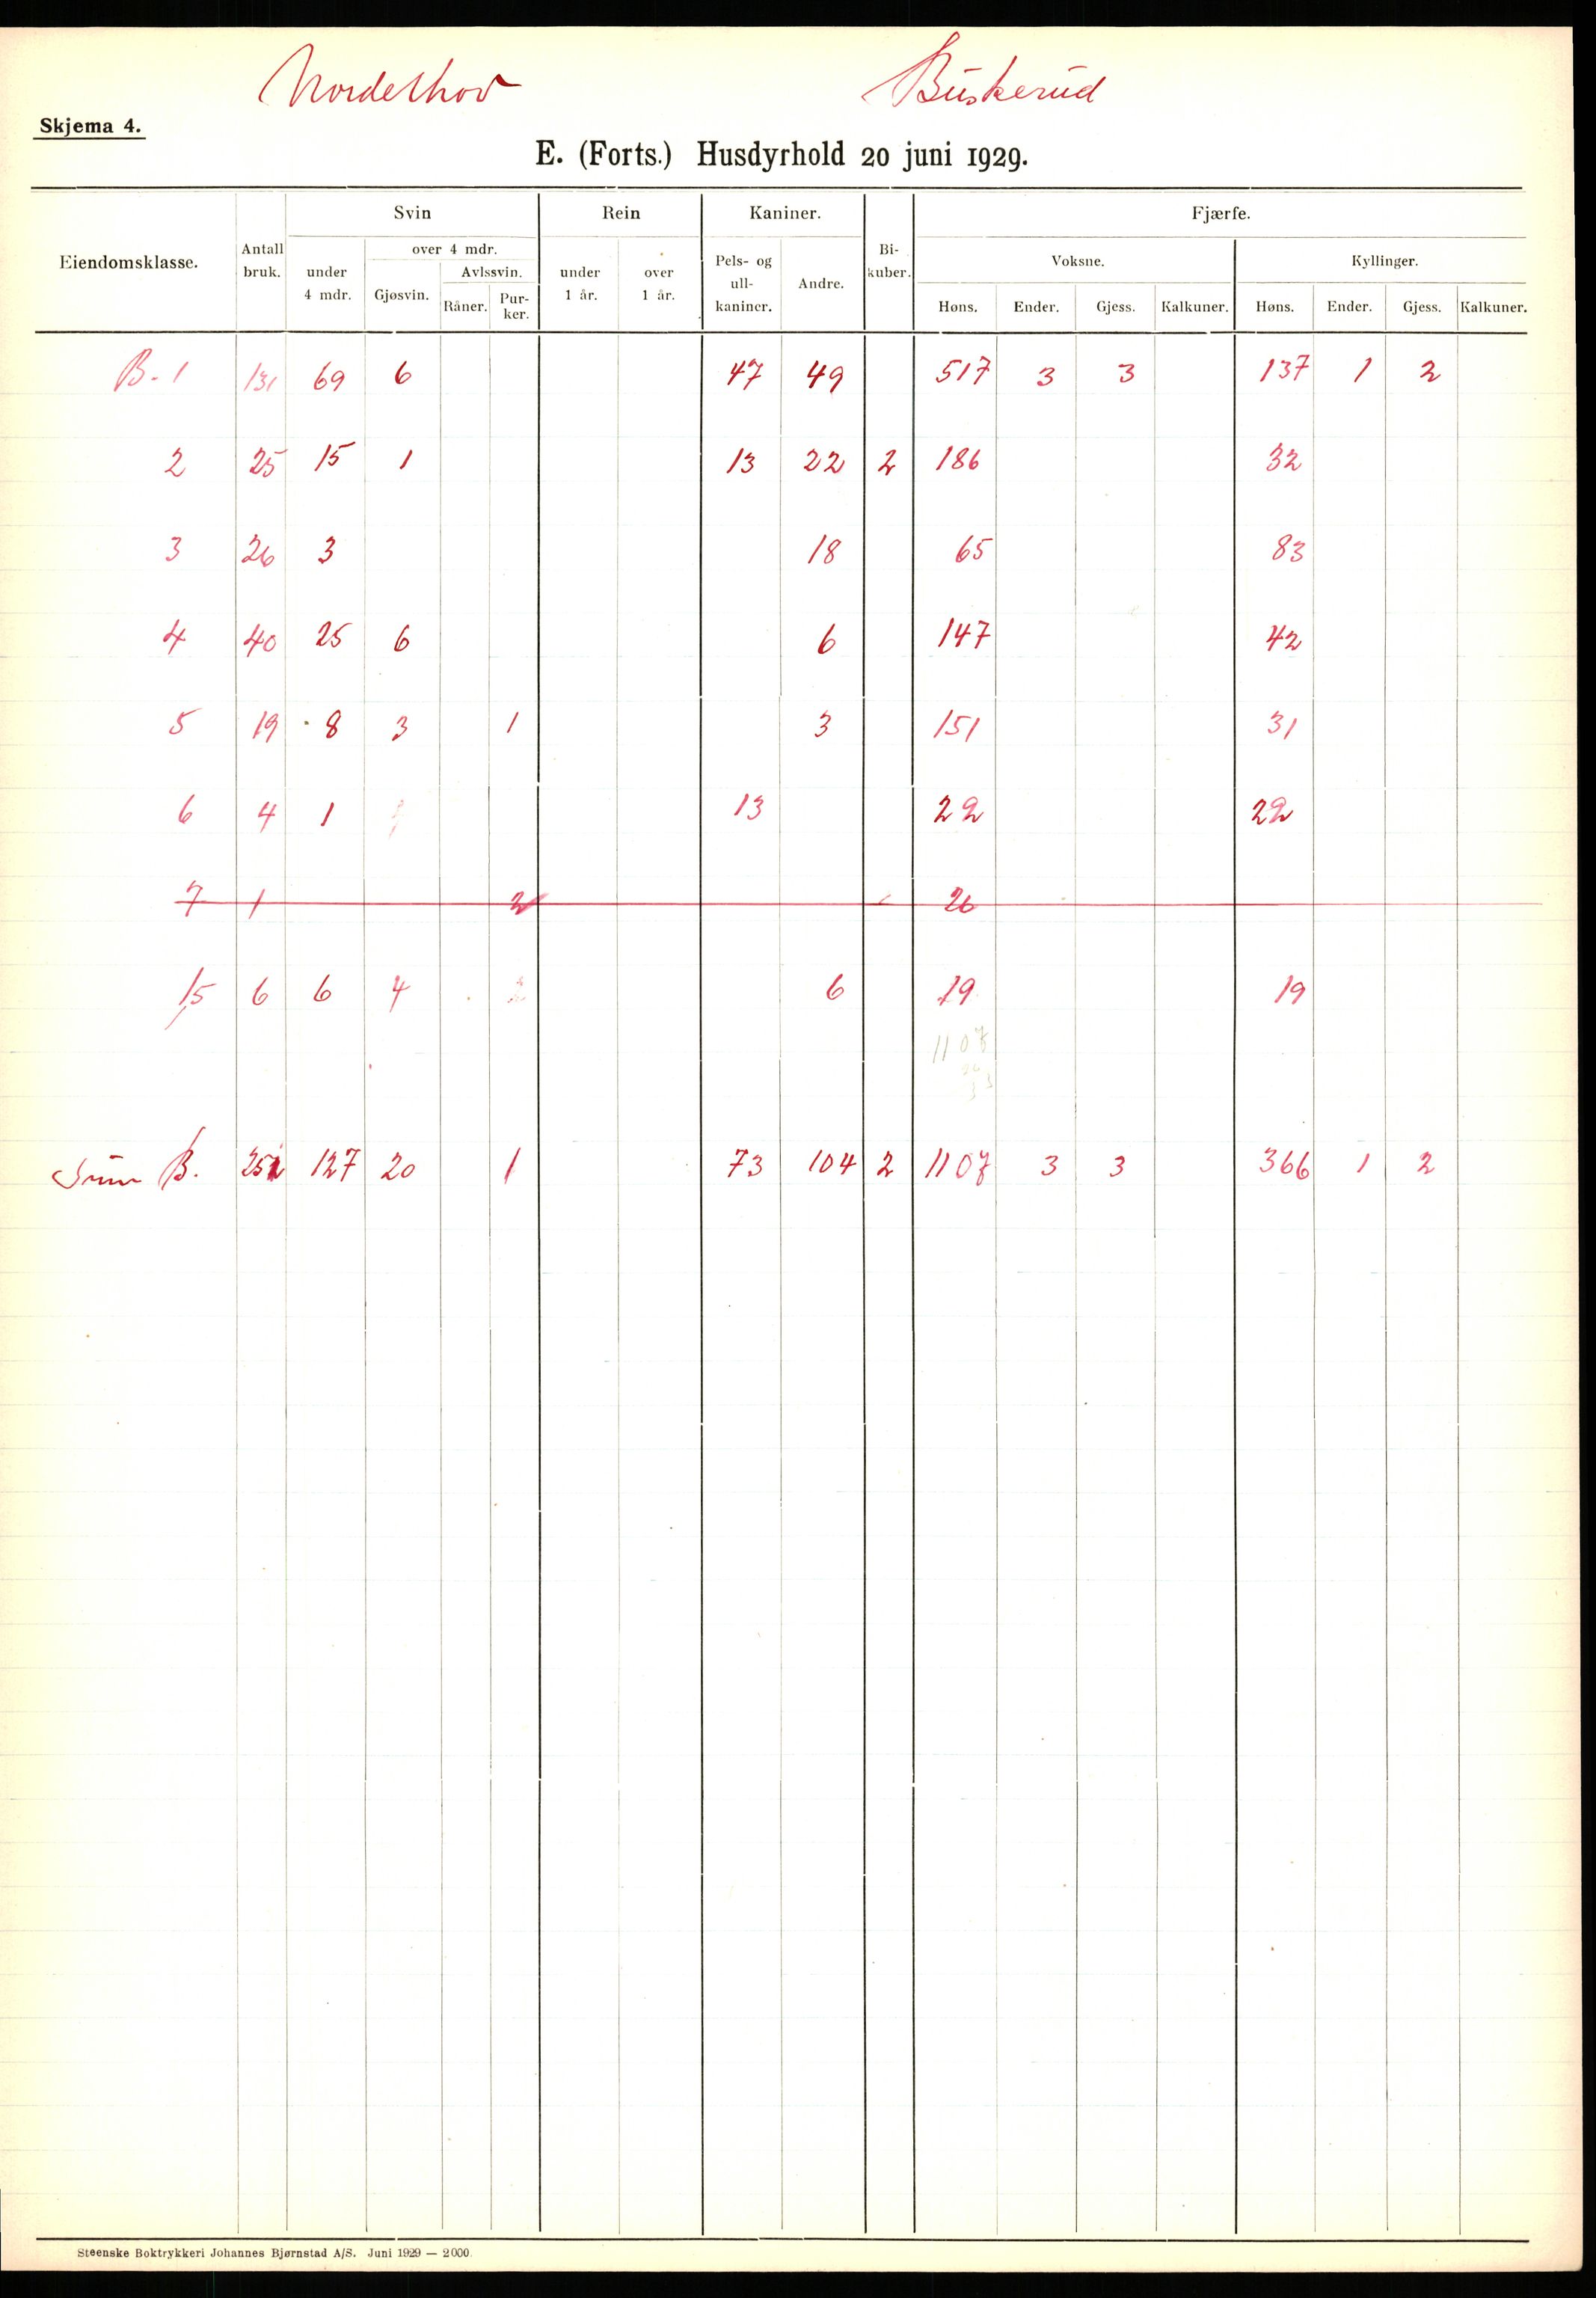 Norderhov Buskerud
Skjema 4.
E. (Forts.) Husdyrhold 20 juni 1929.
Eiendomsklasse. Antall bruk. Svin Rein Kaniner. Bi-kuber. Fjærfe.
under 4 mdr. over 4 mdr. under 1 år. over 1 år. Pels- og ull-kaniner. Andre. Voksne. Kyllinger.
Gjøsvin. Avlssvin.
Råner. Pur-ker. Høns. Ender. Gjess. Kalkuner. Høns. Ender. Gjess. Kalkuner.
B. 1 131 69 6 47 49 517 3 3 137 1 2
2 25 15 1 13 22 2 186 32
3 26 3 18 65 83
4 40 25 6 6 147 42
5 19 8 3 1 3 151 31
6 4 1 13 22 22
7 1 2 26
15 6 6 4 6 19 19
1107
Sum B. 251 127 20 1 73 104 2 1107 3 3 366 1 2
Steenske Boktrykkeri Johannes Bjørnstad A/S. Juni 1929 — 2000.